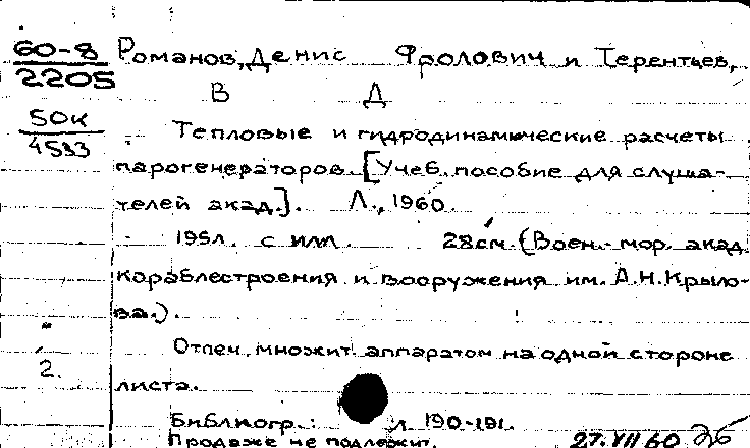 60-8
2205
Романов, Денис Фролович и Терентьев,
В Д
50к
4533
Тепловые и гидродинамические расчеты
парогенераторов. [Учеб. пособие для слуша-
телей акад.]. Л., 1960.
195л. с илл. 28см. (Воен.-мор. акад.
кораблестроения и вооружения им. А.Н.Крыло-
ва.).
Отпеч. множит. аппаратом на одной стороне
2.
листа.
Библиогр.: л. 190-191.
Продаже не подлежит. 27.VII 60